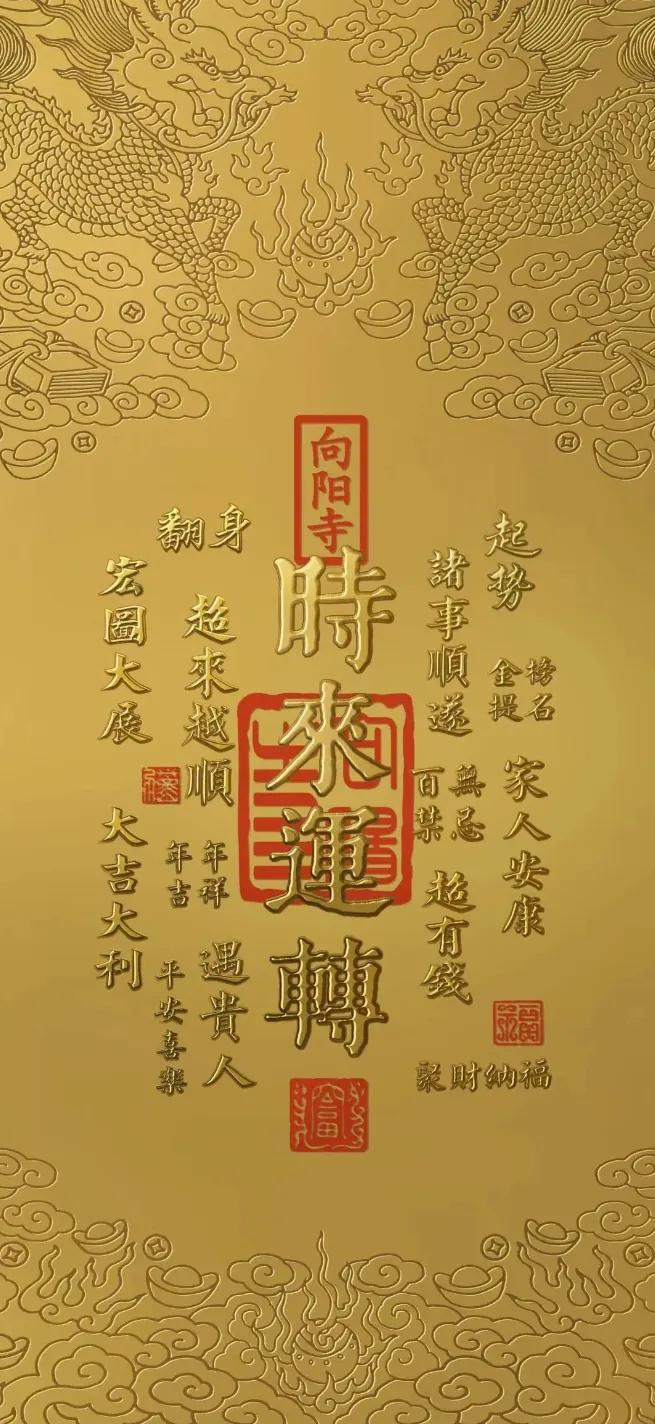 向阳寺
時來運轉
起勢
金榜提名
家人安康
諸事順遂
百無禁忌
超有錢
聚財納福
翻身
超來越順
年年吉祥
遇貴人
平安喜樂
宏圖大展
大吉大利
富